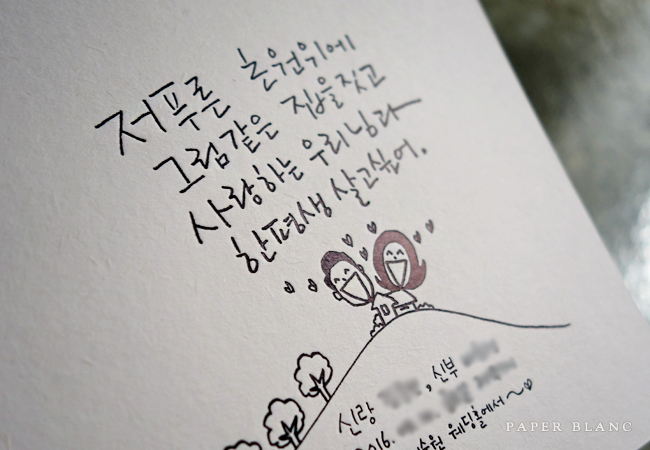 저푸른 초원위에
그림같은 집을짓고
사랑하는 우리님과
한평생 살고싶어.
신랑 , 신부
2016. 수원 웨딩홀에서~♡
PAPER BLANC